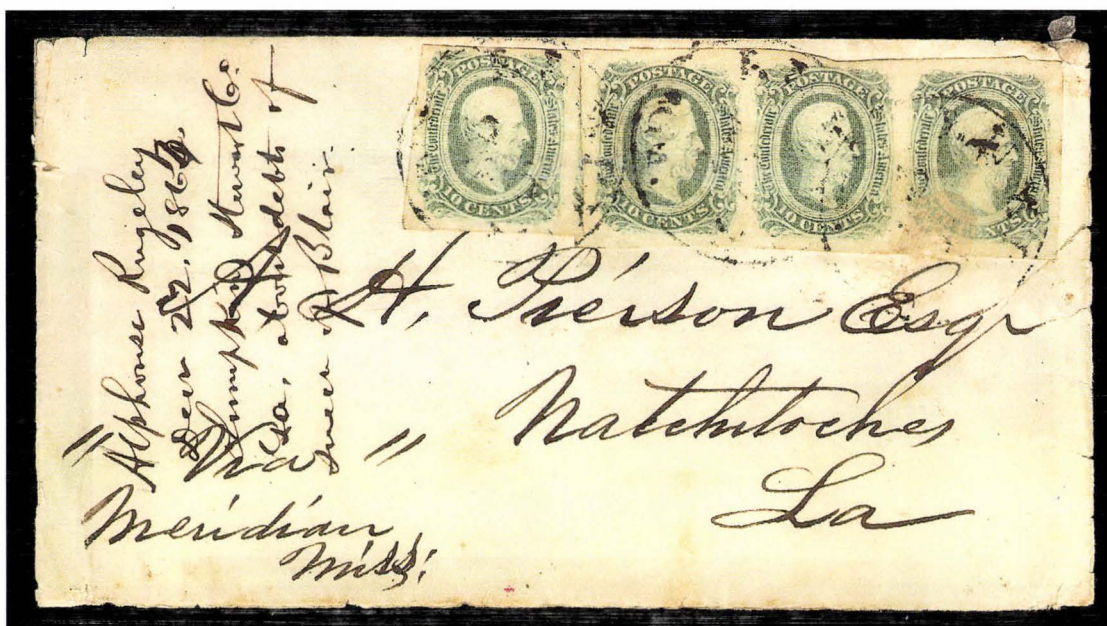 POSTAGE
The Confederate States of America
10 CENTS
POSTAGE
The Confederate States of America
10 CENTS
POSTAGE
The Confederate States of America
10 CENTS
POSTAGE
The Confederate States of America
CENTS
Ga.
Alphonse Rugeley
22, 1864
Lumpkin Stewart Co.
Ga. about debts of
Blair.
H. Pierson Esqr
Natchitoches
La
"Via"
Meridian
Miss: